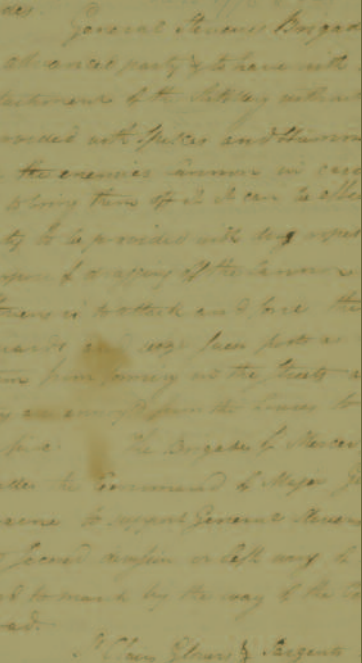 des.
General Stevens Brigad
advanced party & to have with
tachment of the Artillery without
provided with Spikes and Hamm
the enemies Cannon in case
to bring them off if it can be effe
ty to be provided with drag ropes
urpose of dragging off the Cannon
Stevens is to attack and force the
uards and seize such posts as
them from forming in the streets a
they are annoy'd from the houses to
fire. The Brigades of Mercer
under the Command of Major G
reene to support General Steven
Second division or left wing to
to march by the way of the
oad.
St Clair Glovers & Sargents